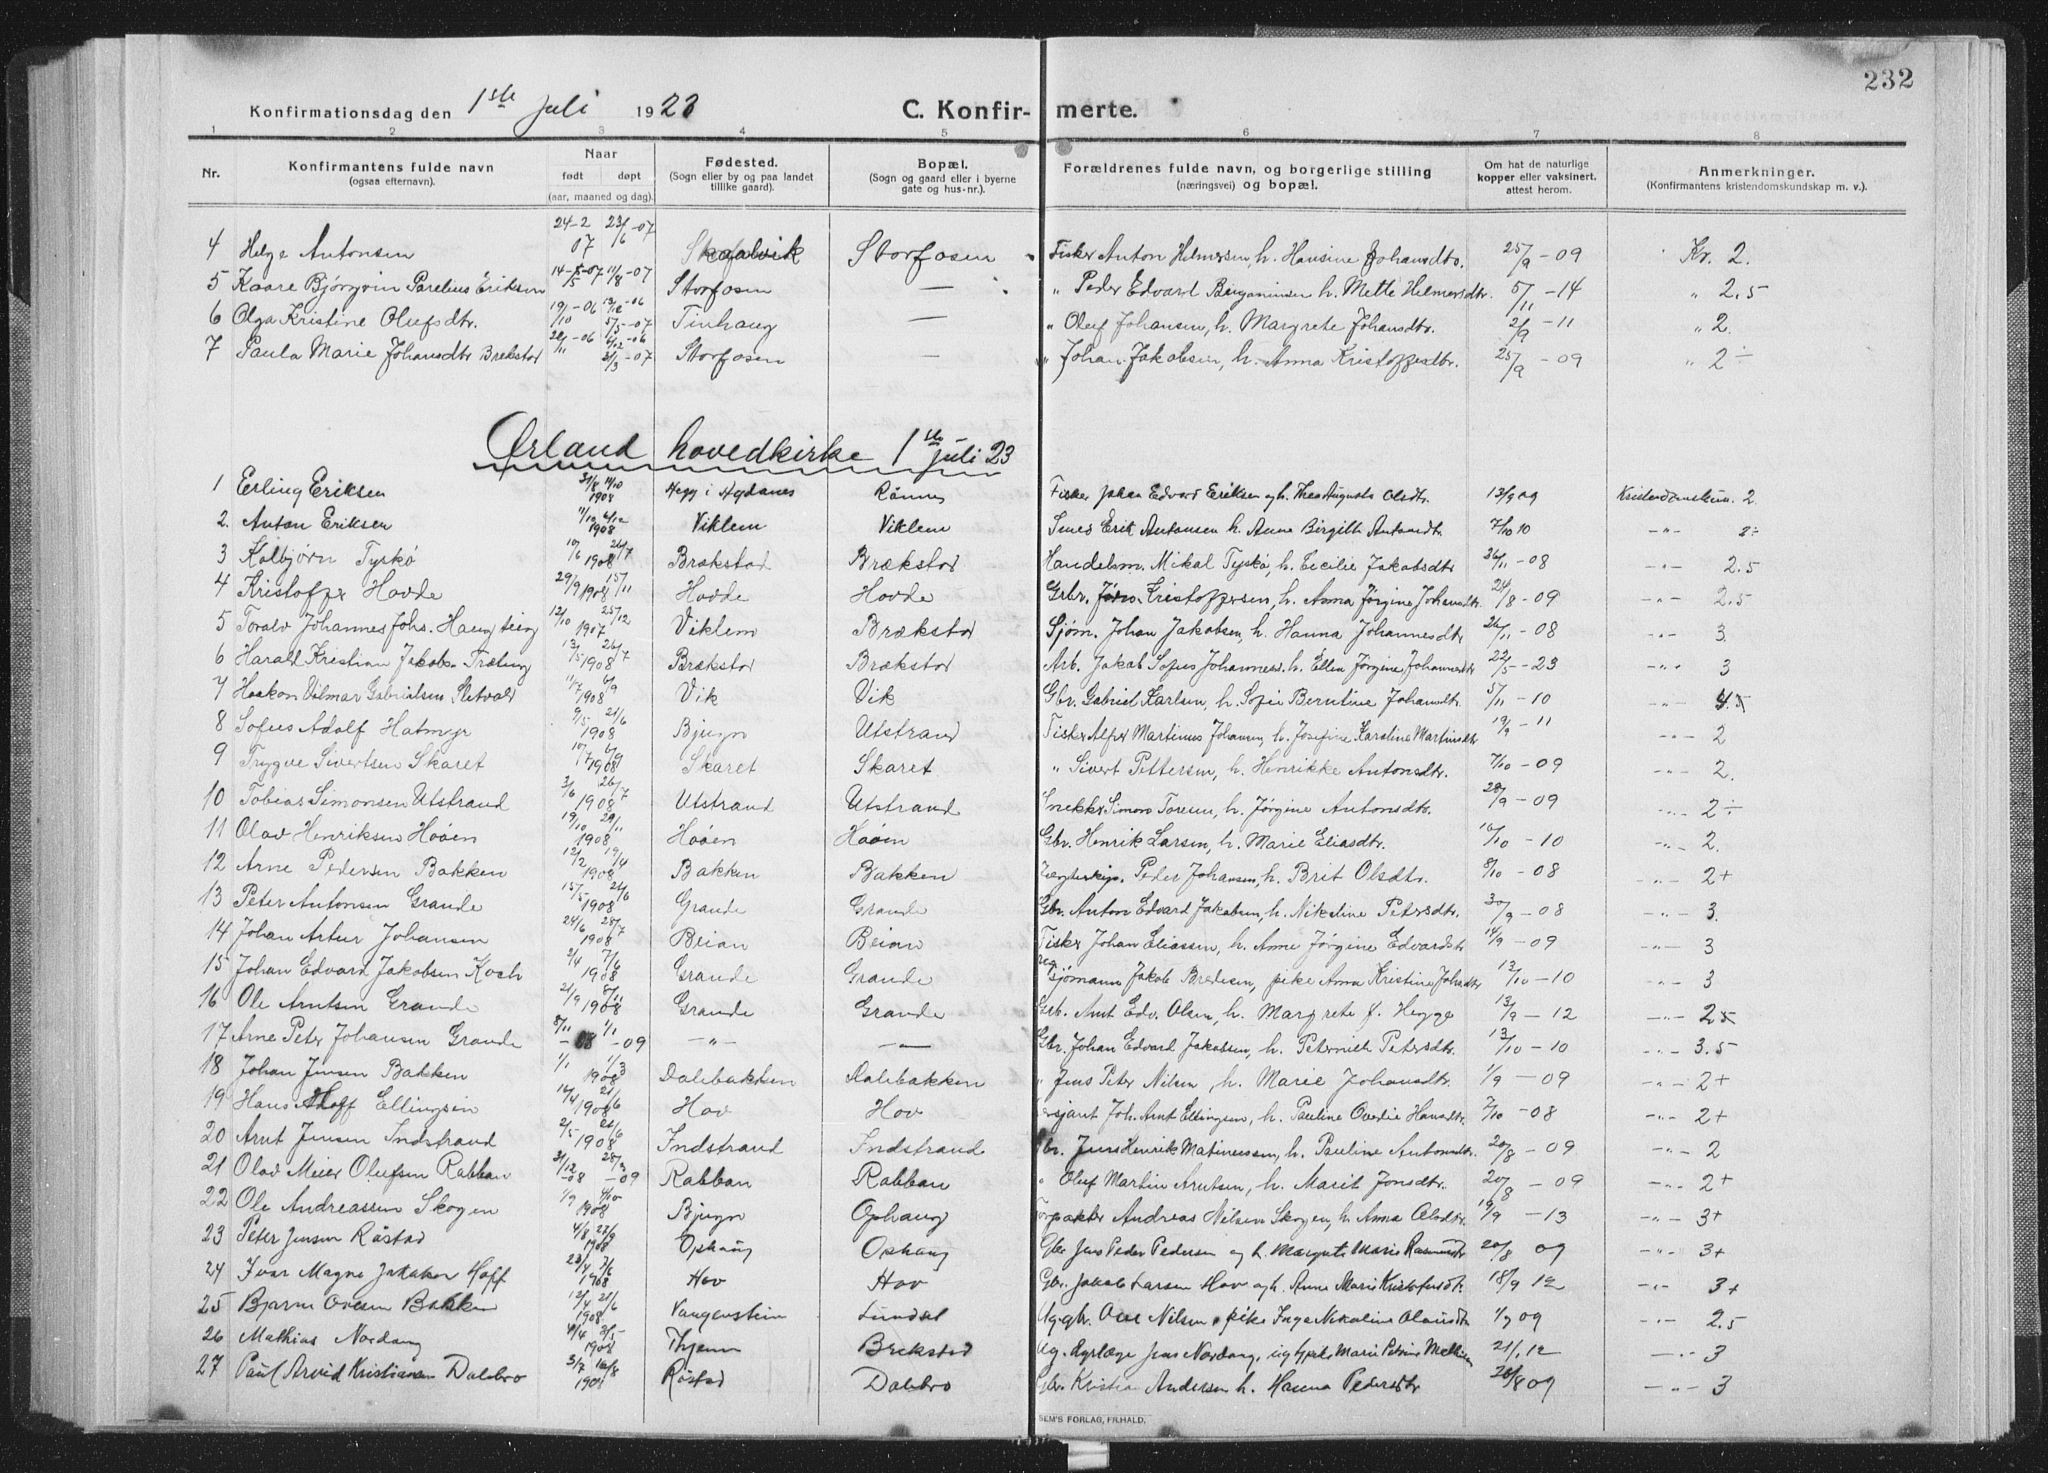 232
Konfirmationsdag den 1ste juli 1923 C. Konfirmerte.
1 2 3 4 5 6 7 8
Nr. Konfirmantens fulde navn (ogsaa efternavn). Naar født døpt (aar, maaned og dag). Fødested. (Sogn eller by og paa landet tillike gaard). Bopæl. (Sogn og gaard eller i byerne gate og hus-nr.). Forældrenes fulde navn, og borgerlige stilling (næringsvei) og bopæl. Om hat de naturlige kopper eller vaksinert, attest herom. Anmerkninger. (Konfirmantens kristendomskundskap m. v.).
4 Helge Antonsen 24-2 07 23/6-07 Storfosen Fisker Anton Helmersen, h. Hansine Johansdtr. 25/9-09 Kr. 2.
5 Kaare Bjørgvin Parelius Eriksen 14/5-07 11/8-07 Storfosen — " Peder Edvard Benjaminsen h. Mette Helmersdtr. 5/11-14 " 2.5
6 Olga Kristine Olufsdtr. 19/10-06 Tinhaug — " Oluf Johansen, h. Margrete Johansdtr. 2/9-11 " 2.
7 Paula Marie Johansdtr Brekstad Storfosen — " Johan Jakobsen, h. Anna Kristoffersdtr. 25/9-09 " 2÷
Ørland hovedkirke 1ste juli 23
1 Erling Eriksen 1908 Fisker Johan Edvard Eriksen og h. Thea Augusta Olsdtr. 13/9 09 Kristendomskun. 2.
2. Anton Eriksen 1908 Viklem Viklem Erik Antonsen h. Anne Birgitte 7/10 10 -"- 2÷
3 Kolbjørn Tyskø 10/6 1908 26/7 Brækstad Brækstad Handelsm. Mikal Tyskø, h. Cecilie Jakobsdtr 26/11-08 -"- 2.5
4 Kristoffer Hovde 29/9 1908 15/11 Hovde Hovde Gbr. Kristoffersen, h. Anna Jørgine Johansdtr 24/8-09 -"- 2.5
5 Toralv Johannes Johs. Haugteig 12/10 1907 25/12 Viklem Brækstad Sjøm. Johan Jakobsen, h. Hanna Johannesdtr 26/11-08 -"- 3.
6 Harald Kristian Jakobs. Træteig 13/5 1908 26/7 Brækstad Brækstad Arb. Jakob Sofus Johannes. h. Ellen Jørgine Johannesdtr 22/5-23 -"- 3
7 Haakon Vilmar Gabrielsen Sletvold 11/7 1908 6/9 Vik Vik Gbr. Gabriel Karlsen, h. Sofie Berntine Johansdtr. 5/11-10 -"-
8 Sofus Adolf Hatmyr 9/5 1908 21/6 Bjugn Utstrand Fisker Alfer Martinus Johansen, h. Josefine Karoline Martinsdtr 19/9-11 -"- 2
9 Trygve Sivertsen Skaret 10/7 1908 6/9 Skaret Skaret " Sivert Pettersen, h. Henrikke Antonsdtr. 7/10-09 -"- 2.
10 Tobias Simonsen Utstrand 3/6 1908 26/7 Utstrand Utstrand Snekker Simon Toresen, h. Jørgine Antonsdtr. 28/9-09 -"- 2÷
11 Olav Henriksen Hoøen 19/10 1908 29/11 Hoøen Hoøen Gbr. Henrik Larsen, h. Marie Eliasdtr. 10/10-10 -"- 2.
12 Arne Pedersen Bakken 12/2 1908 19/4 Bakken Bakken Peder Johansen, h. Brit Olsdtr. 8/10-08 -"- 2+
13 Peter Antonsen Grande 15/5 1908 21/6 Grande Grande Gbr. Anton Edvard Jakobsen, h. Nikoline Petersdtr. 30/9-08 -"- 3.
14 Johan Artur Johansen 24/6 1908 28/7 Beian Beian Fisker Johan Eliassen, h. Anne Jørgine Edvardsdtr 14/9-09 -"- 3
15 Johan Edvard Jakobsen Koch 2/4 1908 7/6 Grande Grande Ug. sjømann Jakob Bredesen, pike Anna Kristine Johsdtr 13/10-10 -"- 3
16 Ole Arntsen Grande 21/9 1908 8/11 Grande Grande Grb. Arnt Edv. Olsen, h. Margrete f. Hegge 13/9-12 -"- 2.5
17 Arne Peter Johansen Grande 8/11-08 1/1-09 -"- -"- Gbr. Johan Edvard Jakobsen, h. Petersdtr. 13/10-10 -"- 3.5
18 Johan Jensen Bakken 1/1 1908 1/3 Dalebakken Dalebakken " Jens Peter Nilsen, h. Marie Johansdtr. 1/9-09 -"- 2+
19 Hans Hoff Ellingsen 1908 Hov Hov Sersjant Joh. Arnt Ellingsen, h. Pauline Ovedie Hansdtr. 7/10-08 -"- 2+
20 Arnt Jensen Indstrand 2/5 1908 21/6 Indstrand Indstrand Gbr. Jens Henrik Matineussen, h. Pauline Antonsdtr. 20/8-09 -"- 2
21 Olav Meier Olufsen Rabban 31/12-08 28/3-09 Rabban Rabban " Oluf Martin Arntsen, h. Marit Jonsdtr. 20/8-09 -"- 2+
22 Ole Andreassen Skogen 1/9 1908 4/10 Bjugn Ophaug Forpakter Andreas Nilsen Skogen, h. Anna Olsdtr. 19/9-13 -"- 3+
23 Peter Jensen Røstad 4/8 1908 27/9 Ophaug Ophaug Gbr Jens Peder Pedersen og h. Margrete Marie Rasmusdtr 20/8 09 -"- 3+
24 Ivar Magne Jakobsen Hoff 23/4 1908 7/6 Hov Hov Gbr. Jakob Larsen Hov og h. Anne Marie Kristofersdtr. 18/9 12 -"- 3+
25 Bjarne Ovesen Bakken 12/4 1908 21/6 Vangenstein Lundal Ug. gbr. Ove Nilsen, pike Inga Nikoline Olausdtr 1/9 09 -"- 2.5
26 Mathias Nordang 1908 Brekstad Ug. Dyrlæge Jens Nordang, ug. Marie Petrine 21/1 12 -"- 3
27 Paul Arvid Kristiansen Dalebro 3/7 1908 16/8 Røstad Dalebro Gbr. Kristian Andersen h. Hanna Pedersdtr 20/8 09 -"- 3
SEM'S FORLAG, FR.HALD.